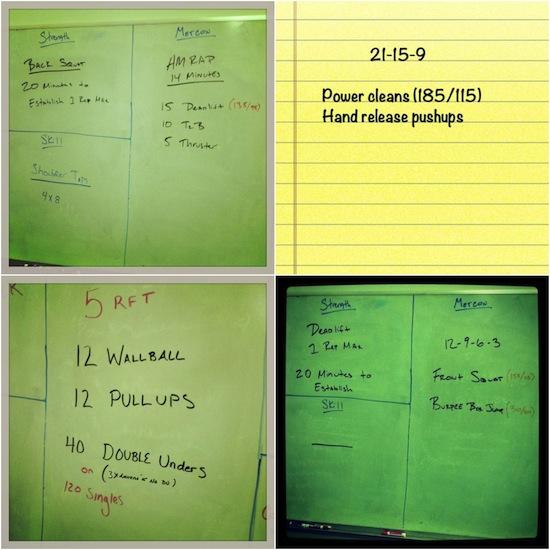 Strength
Back Squat
20 Minutes to
Establish 1 Rep Max
Skill
Shoulder Taps
4x8
Metcon
AMRAP
14 Minutes
15 Deadlift (135/95)
10 T2B
5 Thruster
21-15-9
Power cleans (185/115)
Hand release pushups
5 RFT
12 WALLBALL
12 PULLUPS
40 DOUBLE Unders
on
120 Singles
Strength
Deadlift
1 Rep Max
20 Minutes to
Establish
Skill
Metcon
12-9-6-3
Front Squat
Burpee Box Jump